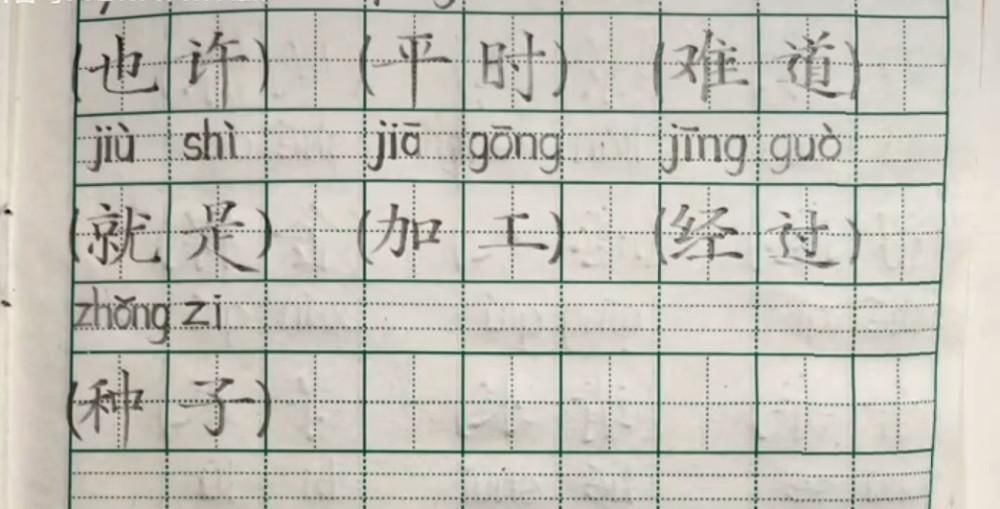 (也许) (平时) (难道)
jiù shì jiā gōng jīng guò
(就是) (加工) (经过)
zhǒng zi
(种子)